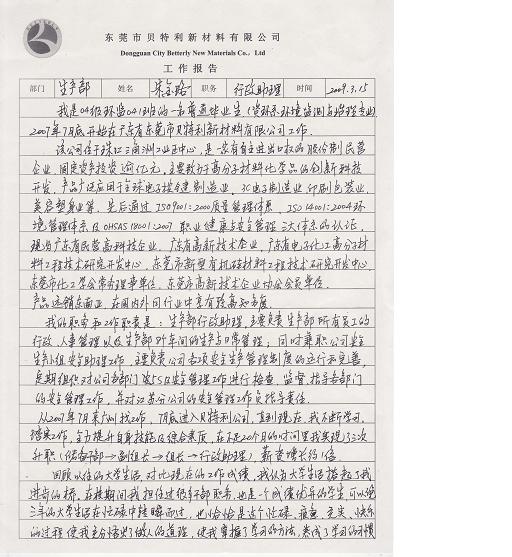 东莞市贝特利新材料有限公司
Dongguan City Betterly New Materials Co., Ltd
工作报告
部门 生产部 姓名 职务 行政助理 时间 2009.3.15
我是04级环监041班的一名普通毕业生(资环系环境监测与治理专业)
2007年7月底开始在广东省东莞市贝特利新材料有限公司工作。
该公司位于珠江三角洲工业区中心,是一家有自主进出口权的股份制民营
企业,固定资产投资逾亿元,主要致力于高分子材料化学品的创新科技
开发,产品广泛应用于全球电子按键制造业,3C电子制造业,印刷包装业,
美容塑身业等,先后通过ISO9001:2000质量管理体系、ISO14001:2004环
境管理体系及OHSAS18001:2007职业健康与安全管理三大体系的认证,
现为广东省民营高科技企业、广东省高新技术企业、广东省电子化工高分子材
料工程技术研究开发中心、东莞市新型有机硅材料工程技术研究开发中心、
东莞市化工学会常务理事单位、东莞市高新技术企业协会会员单位。
产品远销东南亚,在国内外同行业中享有较高知名度。
我的职务和工作职责是:生产部行政助理,主要负责生产部所有员工的
行政、人事管理以及生产部所车间的生产与日常管理;同时兼职公司安全
生产小组安全助理工作,主要负责公司各项安全生产管理制度的运行和完善,
定期组织对公司各部门及5S安全管理工作进行检查、监督、指导各部门
的安全管理工作,并对江苏分公司的安全管理工作负指导责任。
从2007年7月来广州找工作,7月底进入贝特利公司,直到现在,我不断学习,
踏实工作,全力提升自身技能及综合素质,在不足20个月的时间里我实现了三次
升职(储备干部→副组长→组长→行政助理),薪资增长约1倍。
回顾以往的大学生活,对比现在的工作成绩,我认为大学生活搭起了我
进步的桥,在校期间我担任过很多干部职务,也是一个成绩优异的学生,可以说
三年的大学生活在忙碌中瞬而过,也恰恰是这个忙碌、疲惫、充实、快乐
的过程使我充分悟出了做人的道理,使我掌握了学习的方法,养成了学习的习惯